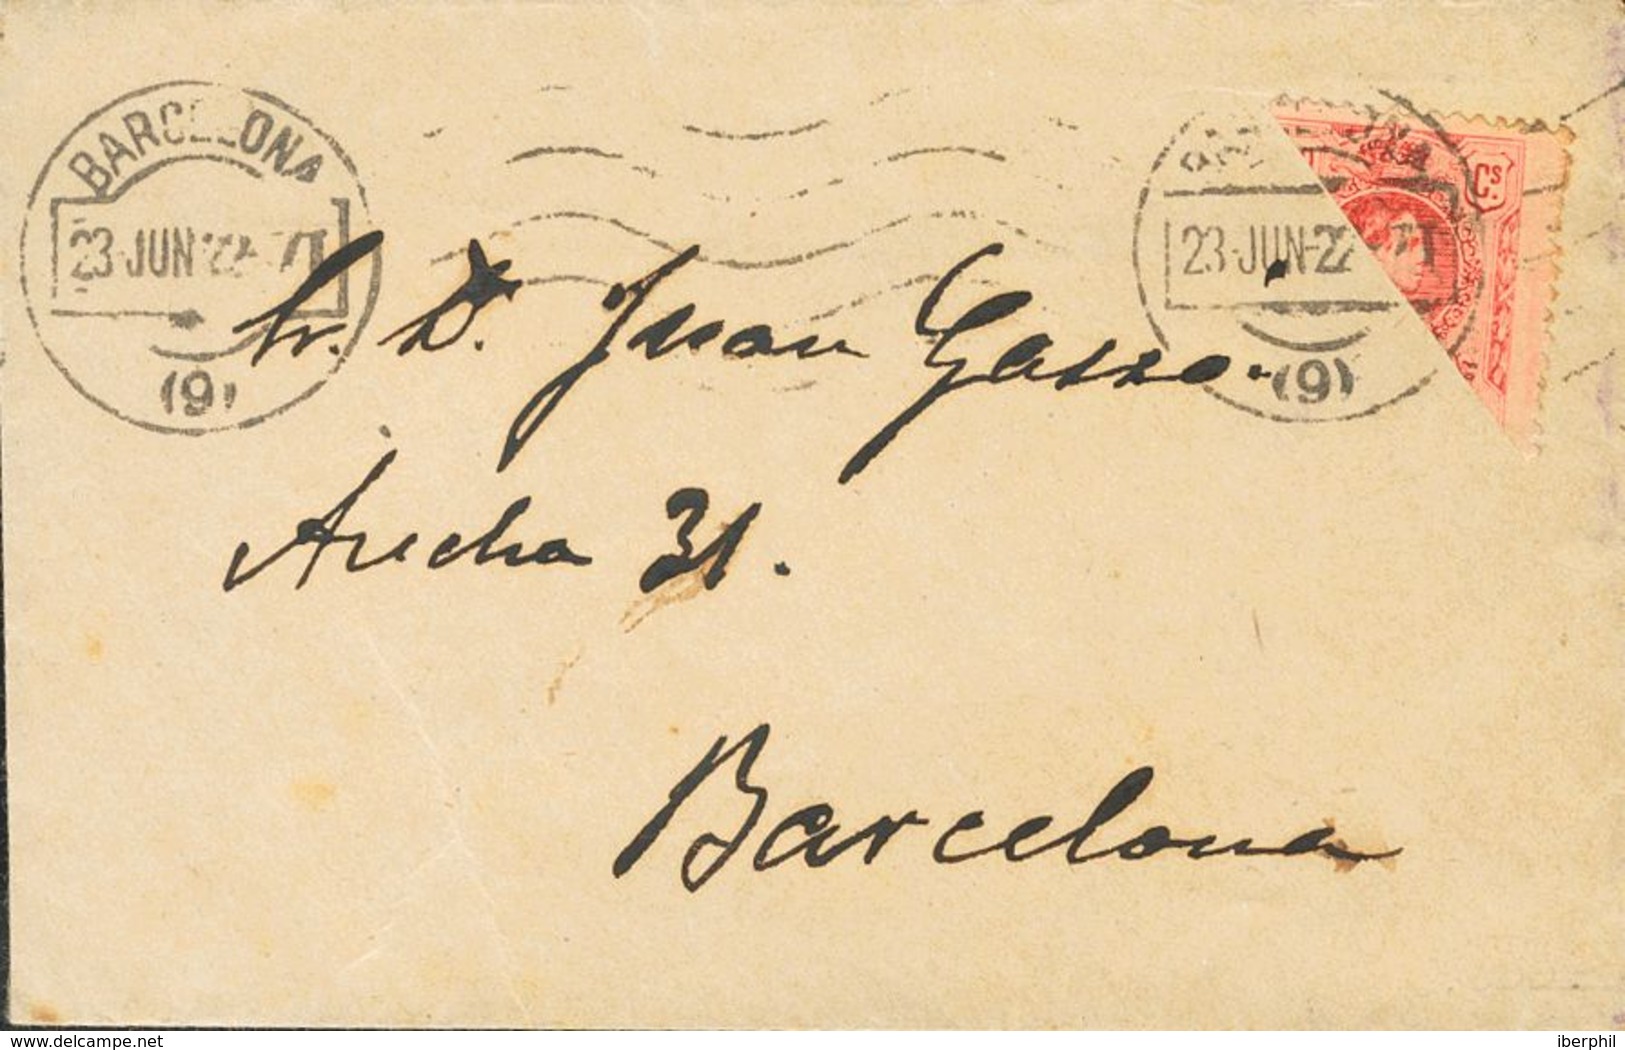 BARCELONA
23·JUN·22·7T
(9)
BARCELONA
23·JUN·22·7T
(9)
Cs.
Sr. D. Juan Gasso.
Ancha 31.
Barcelona
iberphil